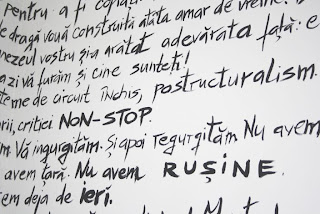 Pentru a fi
de dragă vouă construită atâta amar de vreme.
nezeul vostru și-a arătat adevărata față: e
azi vă furăm și cine sunteți!
teme de circuit închis, postructuralism.
rii, critici NON-STOP.
m. Vă ingurgităm. Și apoi regurgităm. Nu avem
avem țară. Nu avem RUȘINE.
em deja de ieri.